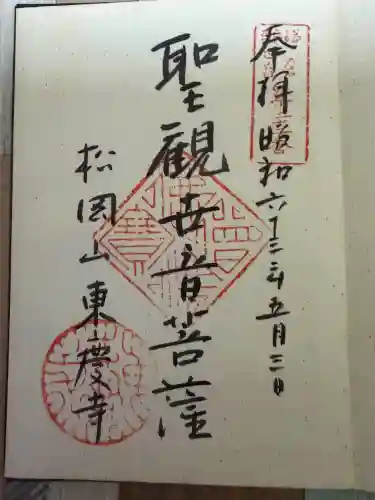 奉拝 昭和六十三年五月三日
聖観世音菩薩
松岡山 東慶寺